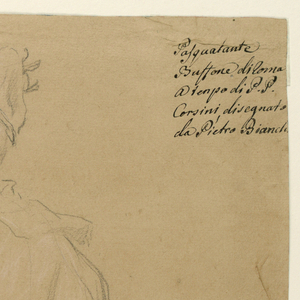 Pasquatante
Buffone di Roma
a tenpo di P. P.
Corsini disegnato
da Pietro Bianchi